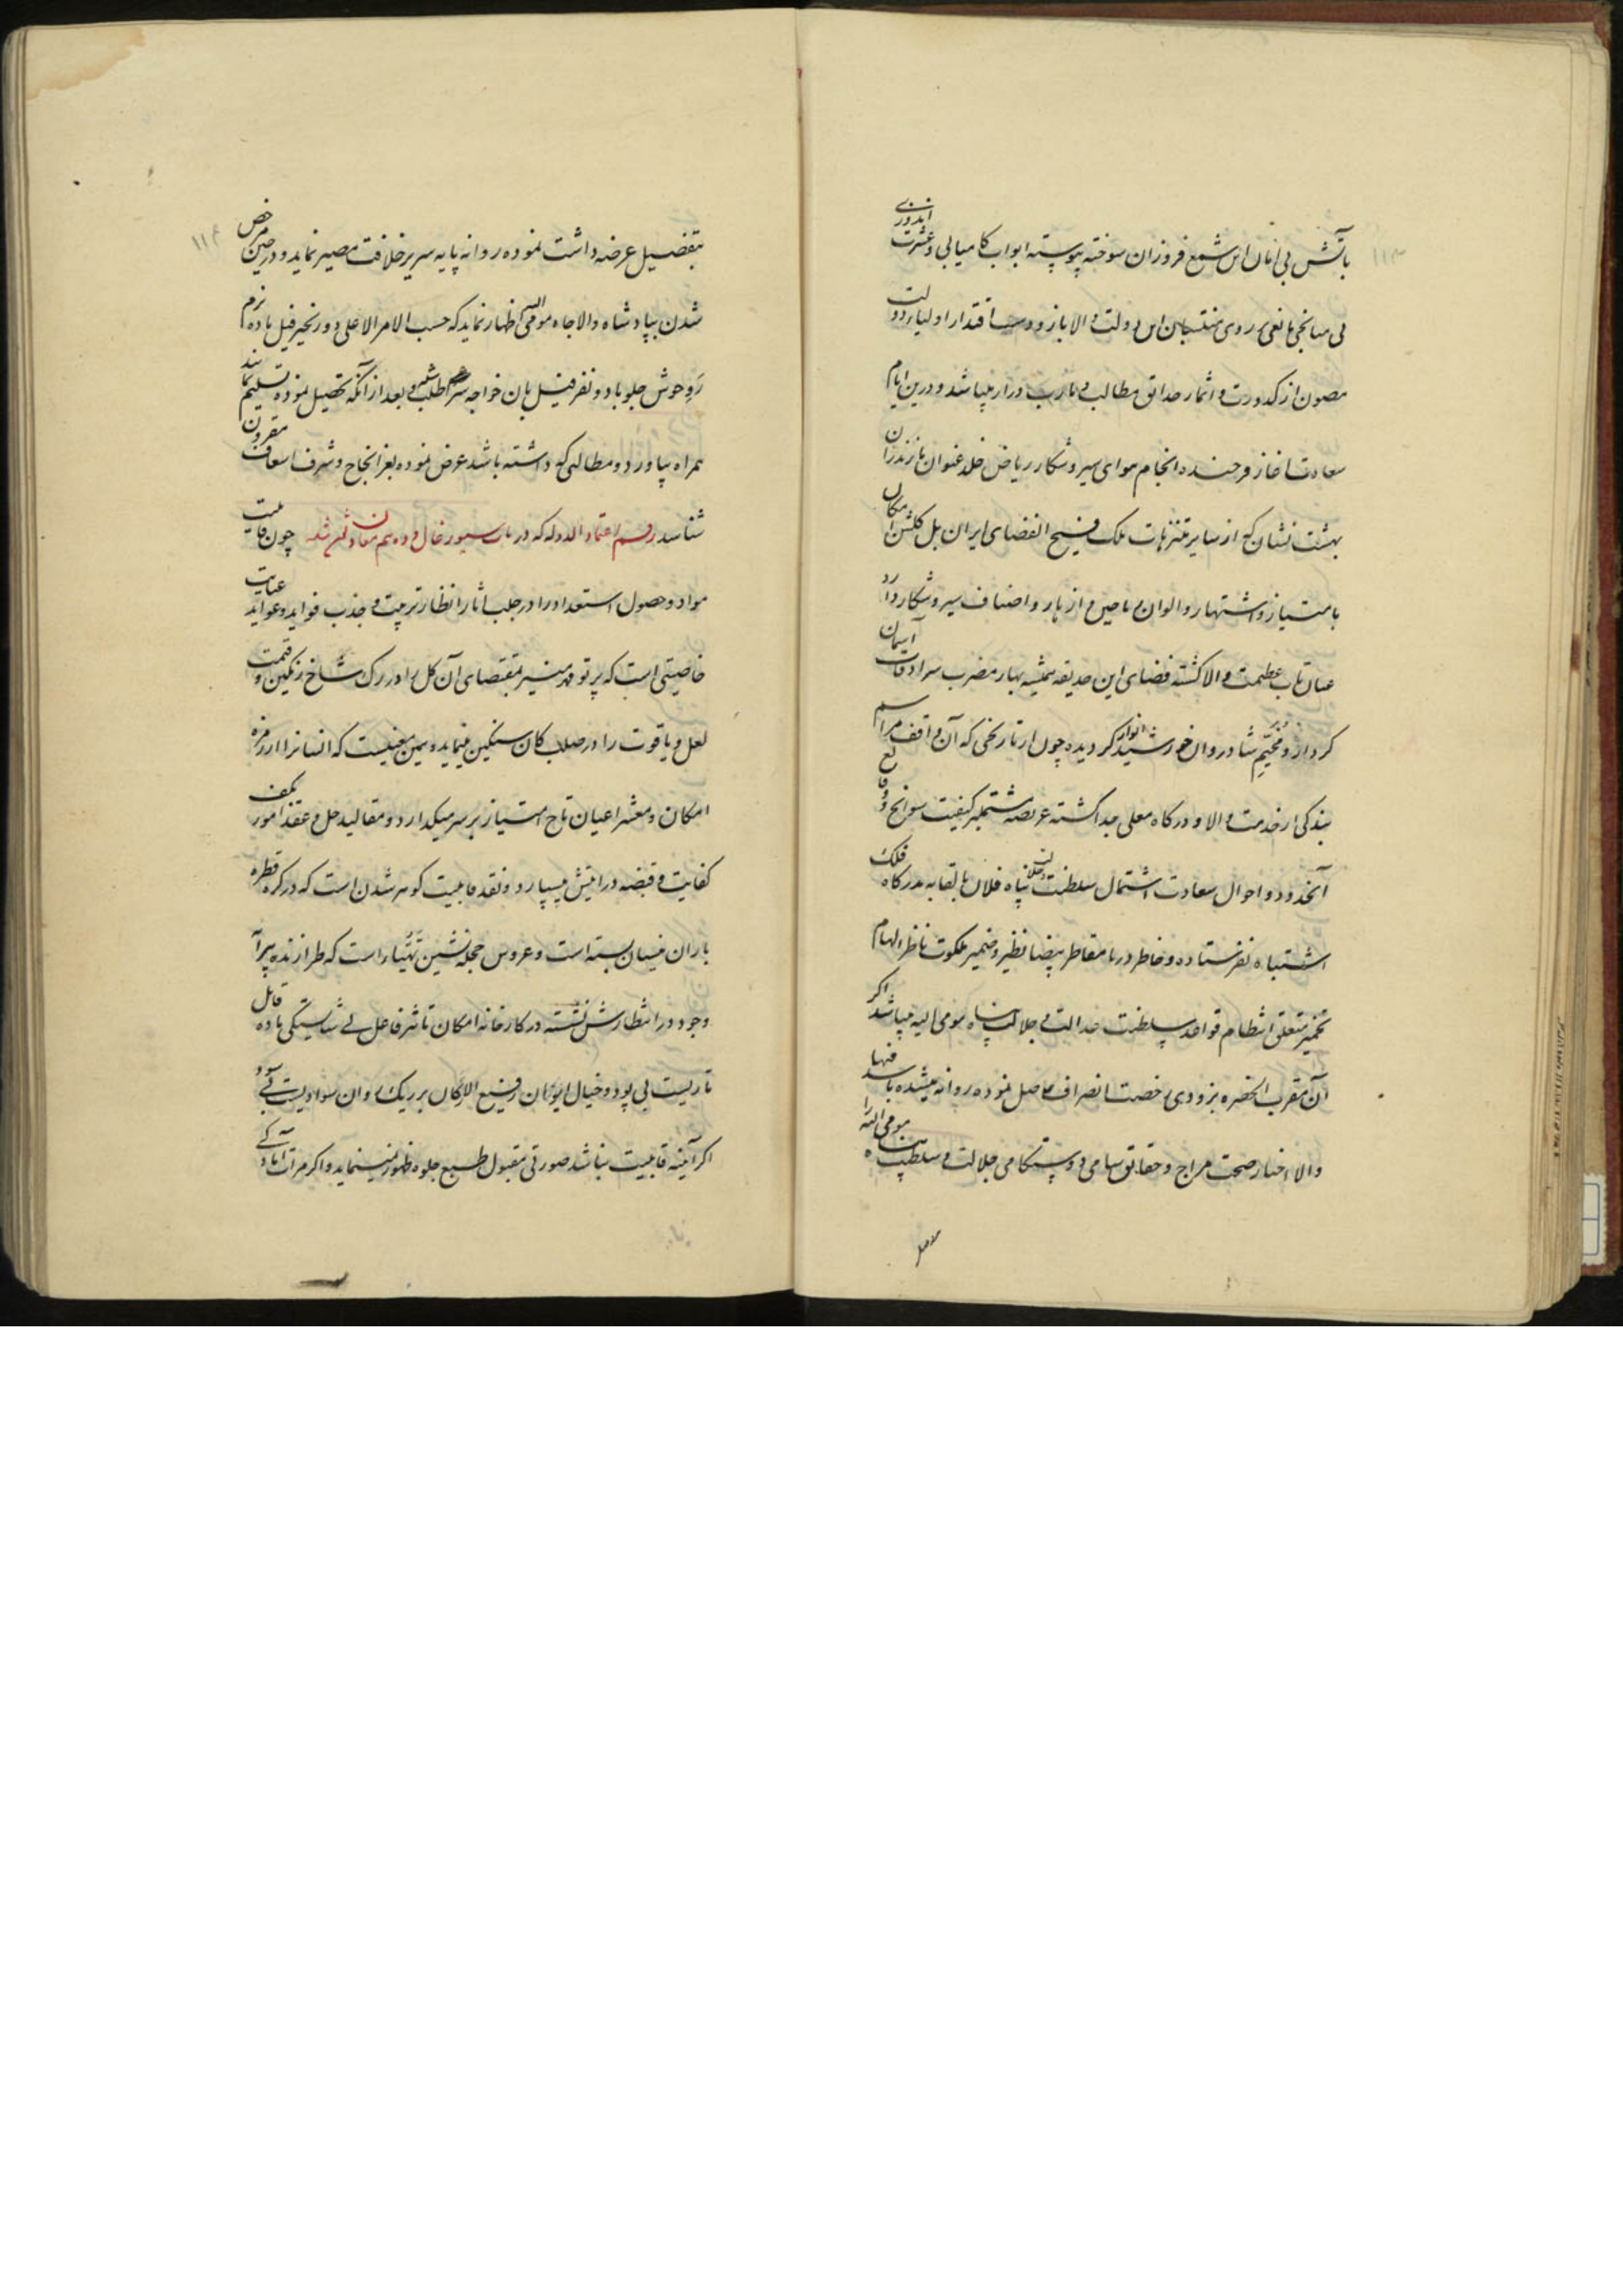 ۱۱۳
باتش بی امان این شمع فروزان سوخته پیوسته ابواب کامیابی و عشرت اندوزی
بی میانجی مانعی بر روی منتسبان این دولت والا باز و دست اقتدار اولیاء دولت
مصون از کدورت و اثمار حدائق مطالب و مارب در بار میباشد و درین ایام
سعادت اغاز فرخنده انجام هوای سیر و شکار ریاض خلد عنوان مازندران
بهشت نشان که از سایر متنزهات ملک فسیح الفضای ایران بل گلشن امکان
بامتیاز و اشتهار و الوان ریاحین و ازهار و اصناف سیر و شکار دارد
عنان تاب عظمت والا گشته فضای این حدیقه همیشه بهار مضرب سرادقات آسمان
کردار و مخیم شادروان خورشید انوار گردیده چون از تاریخی که آن واقف مراسم
بندگی از خدمت والا و درگاه معلی جدا گشته عریضه مشتمل بر کیفیت سوانح و وقایع
آنحدود و احوال سعادت اشتمال سلطنت و جلالت پناه فلان بالقابه بدرگاه فلک
اشتباه نفرستاده و خاطر دریا مقاطر بیضا نظیر و ضمیر ملکوت ناظر الهام
تخمیر متعلق انتظام قواعد سلطنت عدالت و جلالت پناه مومی الیه میباشد اگر
آن مقرب الحضره بزودی رخصت انصراف حاصل نموده روانه میشده باشد فبها
والا اخبار صحت مزاج و حقایق سامی و دوستکامی جلالت و سلطنت پناه مومی الیه را
مفصل
۱۱۴
بتفصیل عرضه داشت نموده روانه پایه سریر خلافت مصیر نماید و در حین مرخص
شدن بپادشاه والاجاه مومی الیه اظهار نماید که حسب الامر الاعلی دو زنجیر فیل ماده نرم
رو خوش جلو با دو نفر فیل بان خواجه سرا طلب و بعد از آنکه تحصیل نموده تسلیم نمایند
همراه بیاورد و مطالبی که داشته باشد عرض نموده بعز انجاح و شرف اسعاف مقرون
شناسد رقم اعتماد الدوله که در باب چون قابلیت
مواد و حصول استعداد را در جلب اثار انظار تربیت و جذب فواید و عواید عنایت
خاصیتی است که پرتو مهر منیر بمقتضای آن گل را در رگ شاخ رنگین و قیمت
لعل و یاقوت را در صلب کان سنگین مینماید و بمین معنیست که انسانرا از زمره
امکان و معشر اعیان تاج امتیاز بر سر میگذارد و مقالید حل و عقد امور بکف
کفایت و قبضه درایتش میسپارد و نقد قابلیت گوهر شدن است که در گره قطره
باران نیسان بسته است و عروس حجله نشین تهیاء است که طرازنده پیرآ
وجود در انتظارش نشسته در کارخانه امکان تاثیر فاعل بی شایستگی ماده قابل
تاریست بی پود و خیال ایوان رفیع الارکان بر ریک روان سوادیست بی سود
اگر آینه قابلیت نباشد صورتی مقبول طبع جلوه ظهور نمینماید و اگر مرآت آمادگی